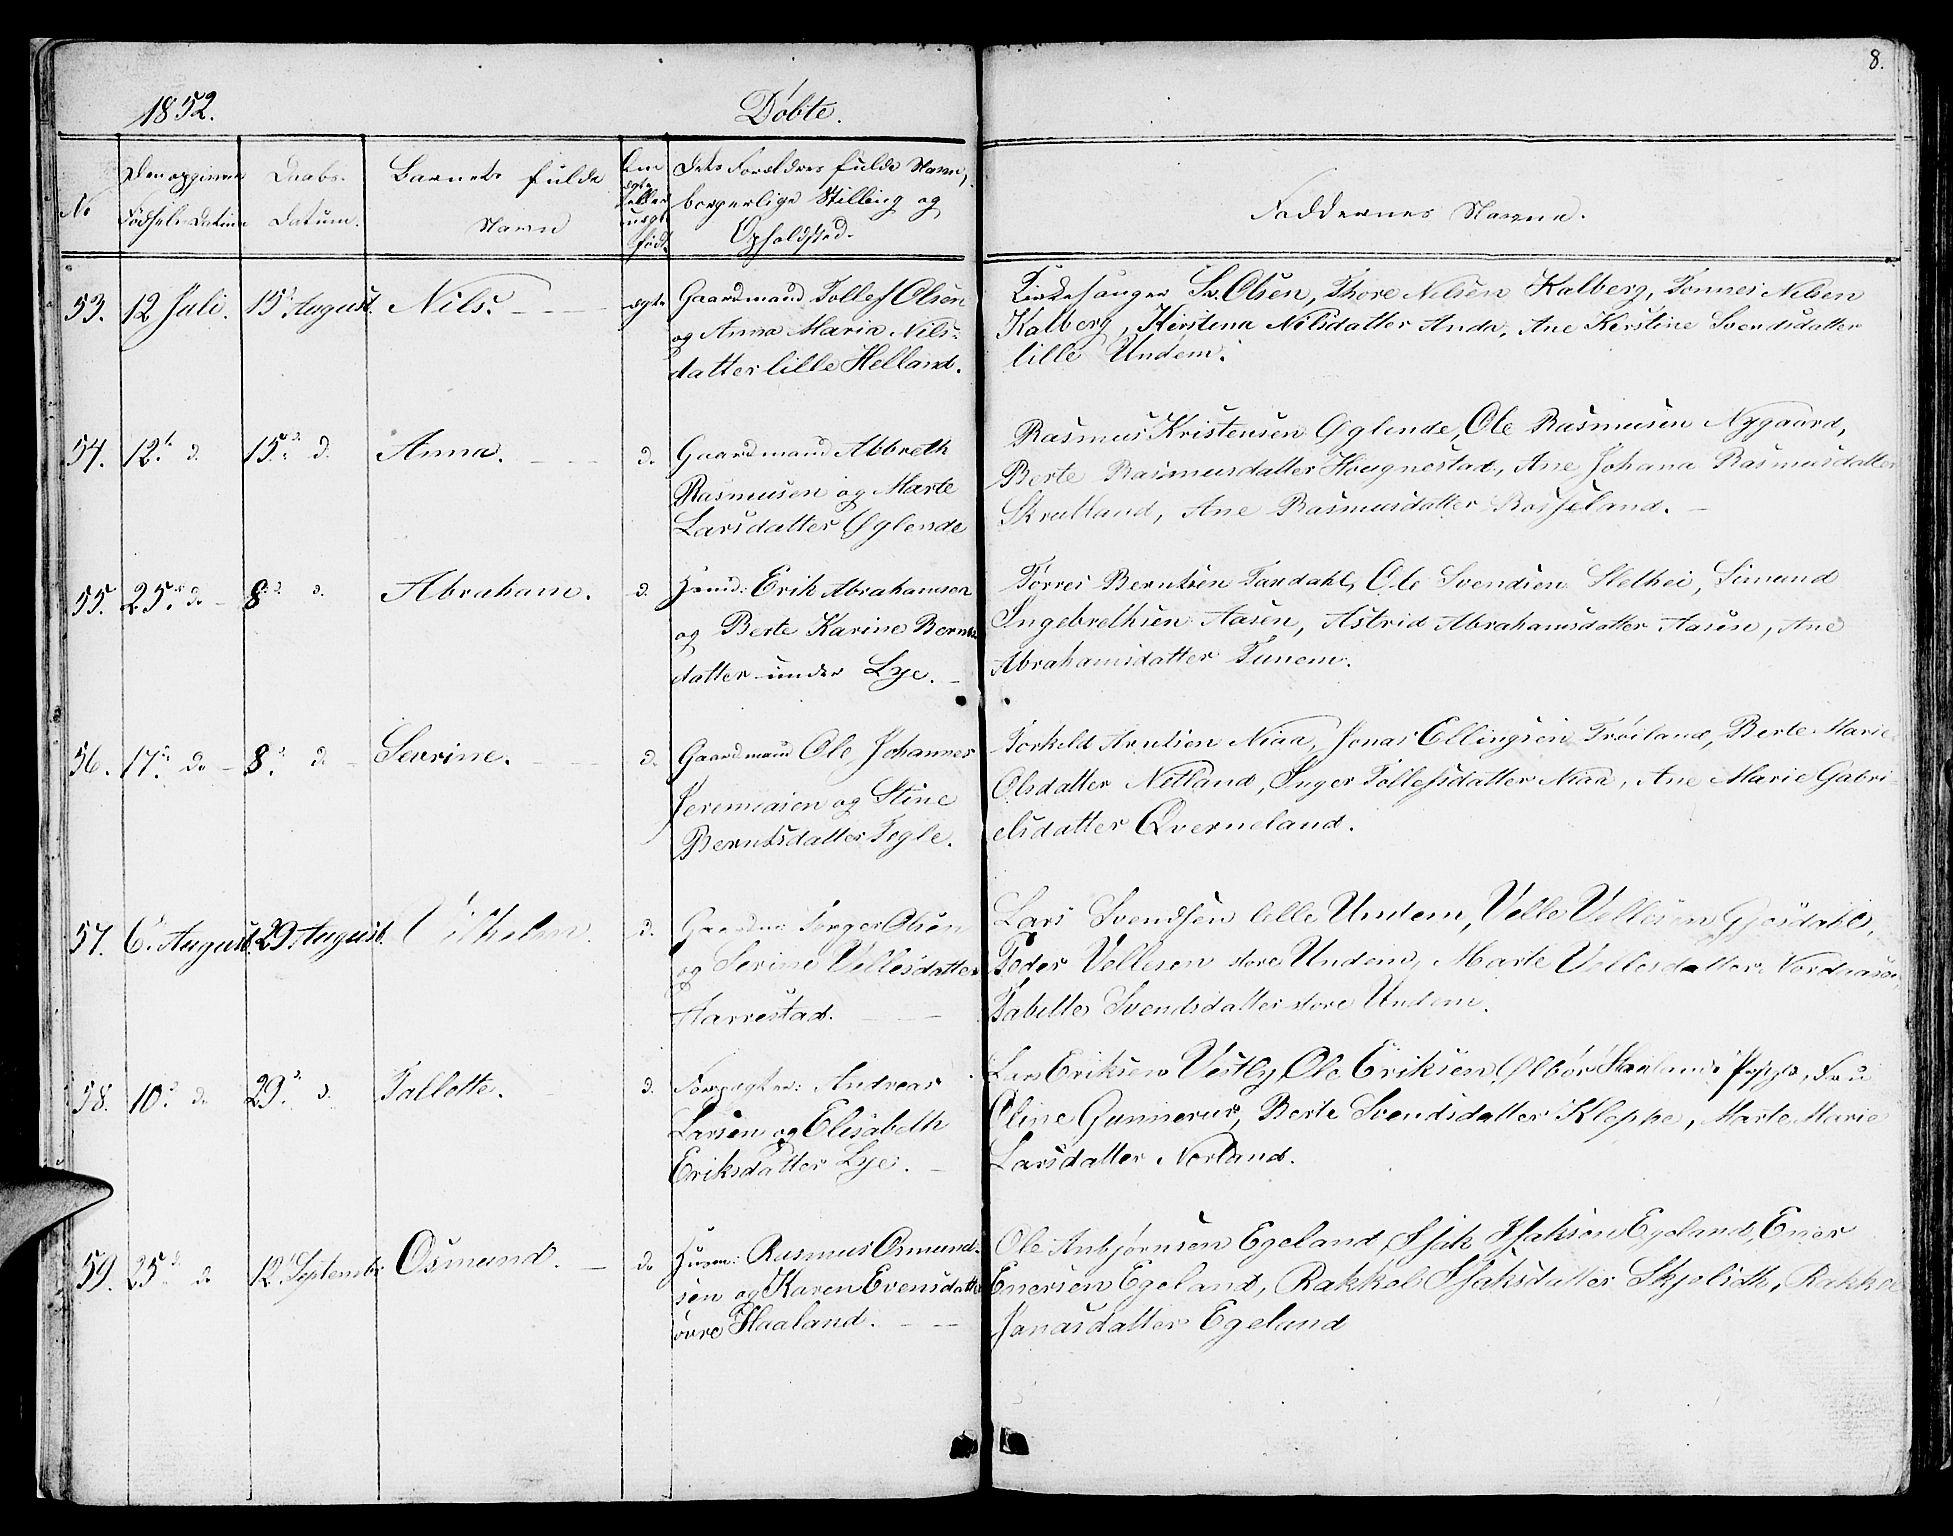 8.
1852. Døbte.
No
Den opgivne
Fødsels-Datum
Daabs-
Datum.
Barnets fulde
Navn
Om
ægte
eller
uægte
født.
Dets Forældres fulde Navn,
borgerlige Stilling og
Opholdssted.
Faddernes Navne.
53. 12 Juli. 15d August. Nils. ægte Gaardmand Tollef Olsen
og Anna Maria Nils-
datter lille Helland.
Kirkesanger Sv. Olsen, Thore Nilsen Kalberg, Tonnes Nilsen
Kalberg, Kirstena Nilsdatter Anda, Ane Kirstine Svendsdatter
lille Undem.
54. 12t d. 15d. d. Anna. d. Gaardmand Albreth
Rasmusen og Marte
Larsdatter Øglende
Rasmus Kristensen Øglende, Ole Rasmusen Nygaard,
Berte Rasmusdatter Hougnestad, Ane Johana Rasmusdatter
Skrulland, Ane Rasmusdatter Rosseland.
55. 25d. do 8d d. Abraham. d. Huusmd: Erik Abrahamsen
og Berte Karine Bernts
datter under Lye.
Torres Berntsen Tandahl, Ole Svendsen Stelhei, Simund
Ingebrethsen Aasen, Astrid Abrahamsdatter Aasen, Ane
Abrahamsdatter Tunem.
56. 17d. do 8d. do Sevrine. d. Gaardmand Ole Johannes
Jeremiasen og Stine
Berntsdatter Fogle.
Torkeld Arntsen Niaa, Jonas Ellingsen Tröiland, Berte Marie
Olsdatter Netland, Inger Tollefsdatter Niaa, Ane Marie Gabri-
elsdatter Qverneland.
57. 6. August. 29 August. Vilhelm. d. Gaardm: Torger Olsen
og Serine Vellesdatter
Harrestad.
Lars Svendsen lille Undem, Velle Vellesen Gjesdahl,
Peder Vellesen store Undem, Marte Vellesdatter Nordraase,
Tabelte Svendsdatter store Undem.
58. 10d do 29d. d. Tallette. d. Forpagter: Andreas
Larsen og Elisabeth
Eriksdatter Lye.
Lars Eriksen Vestly, Ole Eriksen Ølbör, Fru
Oline Gunnerus, Berte Svendsdatter Kleppe, Marte Marie
Larsdatter Norland.
59. 25d do 12 September Osmund. do Huusm: Rasmus Osmund-
sen og Karen Evensdatter
övre Haaland.
Ole Anbjørnsen Egeland, Isak Isaksen Egeland, Ener
Enersen Egeland, Rakkel Isaksdatter Skjelidth, Rakkel
Jonasdatter Egeland